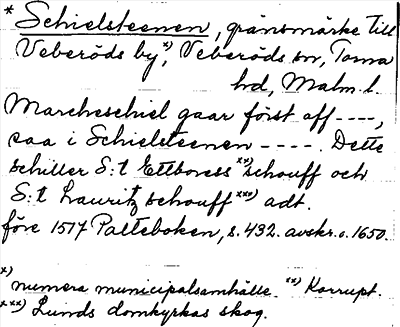 * Schielsteenen, gränsmärke till
Veberöds by,ˣ⁾ Veberöds sn, Torna
hd, Malm. l.
Marcheschiel gaar först aff ----,
saa i Schielsteenen ----. Dette
schiller S:t Ettboressˣˣ⁾ schouff och
S:t Lauritz schouffˣˣˣ⁾ adt.
före 1517 Palteboken, s. 432. avskr. o. 1650.
x) numera municipalsamhälle. xx) Korrupt.
xxx) Lunds domkyrkas skog.